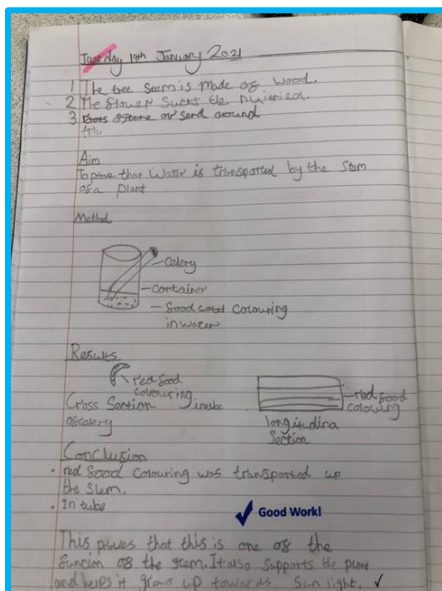 Tuesday 19th January 2021
1 The tree Seem is Made of Wood.
2 The flower Sucks the
3 roots store or send around
Aim
To prove that Water is transported by the Stem
of a plant
Method
Celery
container
food colouring
in water
Results
red food
colouring in tube
Cross Section
of celery
red food
colouring
longitudina
Section
Conclusion
• red food Colouring was transported up
the Stem.
• In tube
✓ Good Work!
This proves that this is one of the
funcion of the stem. It also supports the plant
and helps it grow up towards Sun light. ✓